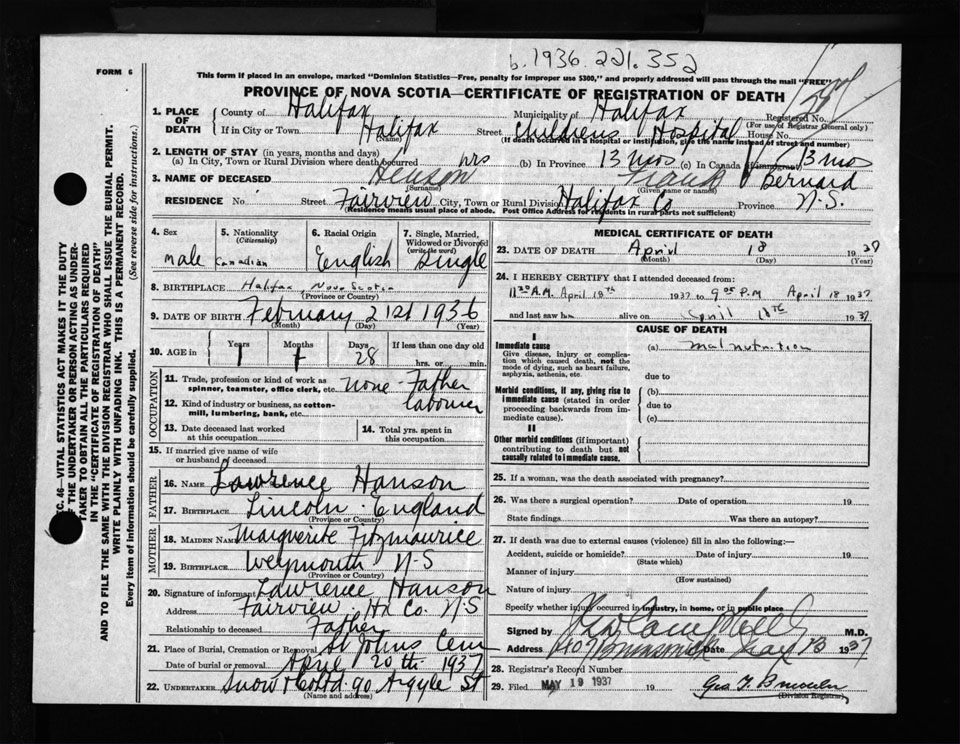 b. 1936. 221. 352
FORM 6
This form if placed in an envelope, marked "Dominion Statistics—Free, penalty for improper use $300," and properly addressed will pass through the mail "FREE"
PROVINCE OF NOVA SCOTIA—CERTIFICATE OF REGISTRATION OF DEATH
1. PLACE OF DEATH County of Halifax Municipality of Halifax Registered No.
(For use of Registrar General only)
If in City or Town Halifax Street Childrens Hospital House No.
(Name) (If death occurred in a hospital or institution, give the name instead of street and number)
2. LENGTH OF STAY (in years, months and days)
(a) In City, Town or Rural Division where death occurred hrs (b) In Province 13 mos (c) In Canada (if immigrant) 13 mo
3. NAME OF DECEASED Henson Frank Bernard
(Surname) (Given name or names)
RESIDENCE No. Street Fairview City, Town or Rural Division Halifax Co Province N.S.
(Residence means usual place of abode. Post Office Address for residents in rural parts not sufficient)
4. Sex male
5. Nationality (Citizenship) Canadian
6. Racial Origin English
7. Single, Married, Widowed or Divorced (write the word) Single
8. BIRTHPLACE Halifax, Nova Scotia
(Province or Country)
9. DATE OF BIRTH February 21st 1936
(Month) (Day) (Year)
10. AGE in Years 1 Months 1 Days 28 If less than one day old
hrs. or min.
OCCUPATION
11. Trade, profession or kind of work as spinner, teamster, office clerk, etc. none - Father
12. Kind of industry or business, as cotton-mill, lumbering, bank, etc. labourer
13. Date deceased last worked at this occupation
14. Total yrs. spent in this occupation
15. If married give name of wife or husband of deceased
FATHER
16. NAME Lawrence Hanson
17. BIRTHPLACE Lincoln - England
(Province or Country)
MOTHER
18. MAIDEN NAME Marguerite Fitzmaurice
19. BIRTHPLACE Weymouth N-S
(Province or Country)
20. Signature of informant Lawrence Hanson
Address Fairview. Hx Co. N-S
Relationship to deceased Father
21. Place of Burial, Cremation or Removal St Johns Cem
Date of burial or removal April 20th 1937
22. UNDERTAKER Snow & Co Ltd 90 Argyle St
(Name and address)
MEDICAL CERTIFICATE OF DEATH
23. DATE OF DEATH April 18 1937
(Month) (Day) (Year)
24. I HEREBY CERTIFY that I attended deceased from:
1130 A.M. April 18th 1937 to P.M April 18 1937
and last saw him alive on April 18th 1937
CAUSE OF DEATH
I
Immediate cause (a) malnutrition
Give disease, injury or complication which caused death, not the mode of dying, such as heart failure, asphyxia, asthenia, etc.
due to
Morbid conditions, if any, giving rise to immediate cause (stated in order proceeding backwards from immediate cause).
(b)
due to
(c)
II
Other morbid conditions (if important) contributing to death but not causally related to immediate cause.
25. If a woman, was the death associated with pregnancy?
26. Was there a surgical operation? Date of operation 19
State findings Was there an autopsy?
27. If death was due to external causes (violence) fill in also the following:—
Accident, suicide or homicide? Date of injury 19
(State which)
Manner of injury
(How sustained)
Nature of injury
Specify whether injury occurred in industry, in home, or in public place
Signed by Campbell M.D.
Address Brunswick Date 1937
28. Registrar's Record Number
29. Filed MAY 19 1937 19
(Division Registrar)
SEC. 46—VITAL STATISTICS ACT MAKES IT THE DUTY
OF THE UNDERTAKER OR PERSON ACTING AS UNDER-
TAKER TO OBTAIN ALL THE PARTICULARS REQUIRED
IN THE "CERTIFICATE OF REGISTRATION OF DEATH"
AND TO FILE THE SAME WITH THE DIVISION REGISTRAR WHO SHALL ISSUE THE BURIAL PERMIT.
WRITE PLAINLY WITH UNFADING INK. THIS IS A PERMANENT RECORD.
Every item of information should be carefully supplied. (See reverse side for instructions.)